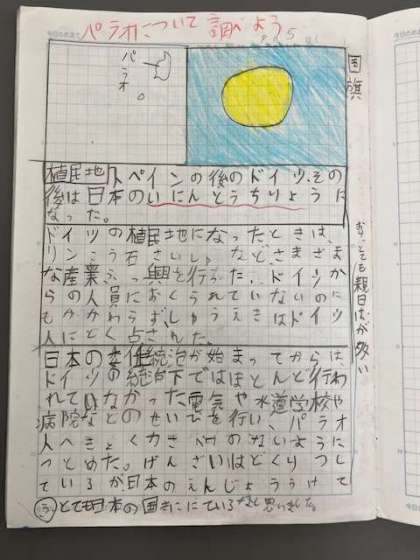 パラオについて調べよう
パラオ
国旗
植民地 スペインの後のドイツ、その
後は日本のいにんとうちりょうに
なった。
ドイツの植民地になったときは、
リンこう石さいしゅなどさまざま
な産業ふっ興を行った。ドイツか
らの人員におくられていないのに
もかかわらず、しゅうえきはドイツ
人にどく占された。
日本の委任統治が始まってからは、
ドイツの統治下ではほとんど行わ
れていなかった電気や水道学校や
病院などのせいびを行い、パラオ
人へきょく力さべつのないように
つとめた。げんざいはどくりつし
ているが日本のえんじょうけて
とても日本の国きににているなと思いました。
とても親日はが多い